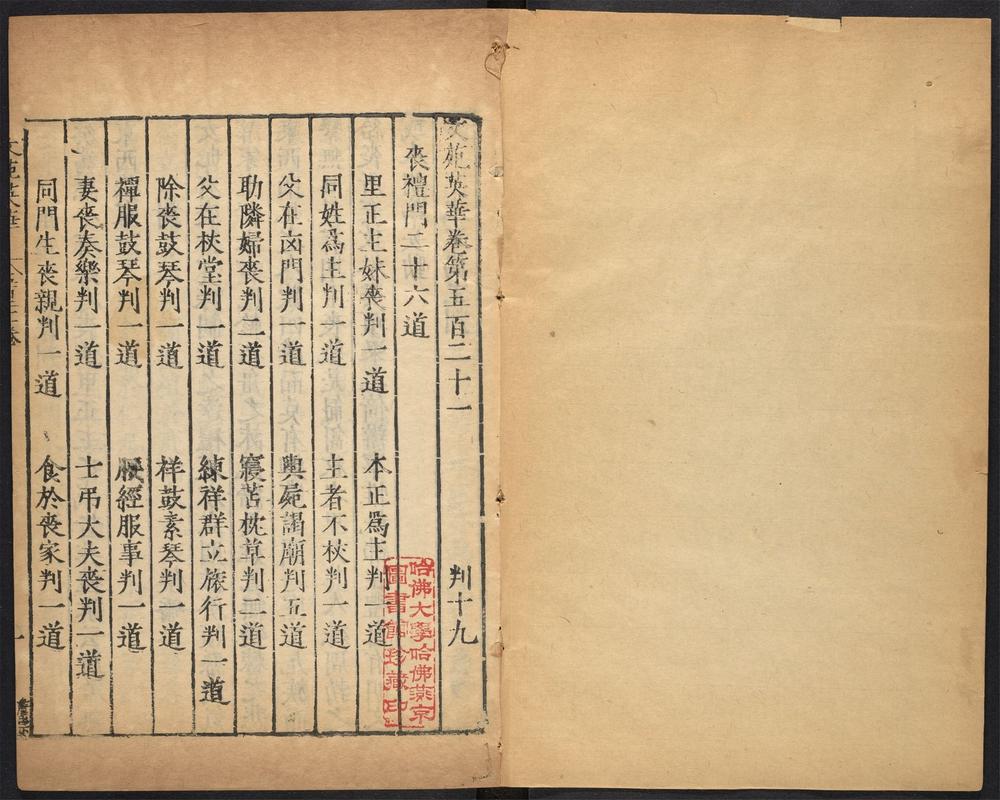 文苑英華卷第五百二十一 判十九
喪禮門二十六道
里正主妹喪判一道 本正為主判一道
同姓爲主判一道 主者不杖判一道
父在㐫門判一道 輿屍謁廟判五道
助隣婦喪判二道 寢苫枕草判二道
父在杖堂判一道 練祥群立旅行判一道
除喪鼓琴判一道 祥鼓素琴判一道
禫服鼓琴判一道 服事判一道
妻喪奏樂判一道 士弔大夫喪判一道
同門生喪親判一道 食於喪家判一道
文苑英華
一
哈佛大學哈佛燕京
圖書館珍藏印